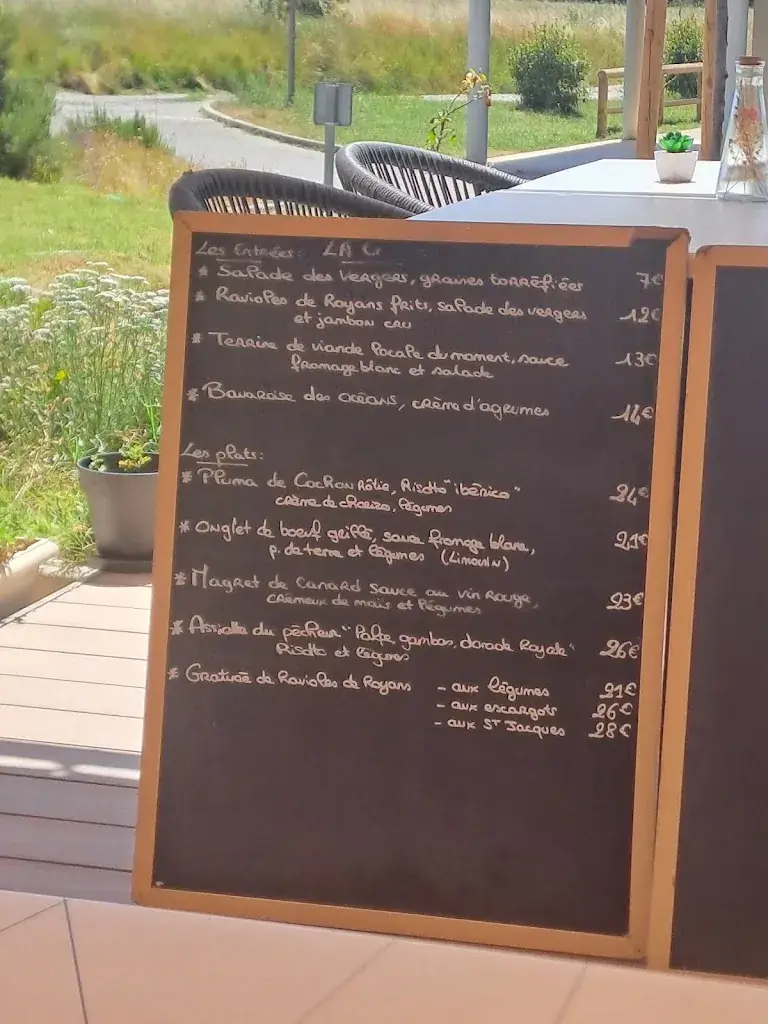 Les Entrées: LA C
* Salade des vergers, graines torréfiées 7€
* Ravioles de Royans frits, salade des vergers 12€
et jambon cru
* Terrine de viande locale du moment, sauce 13€
fromage blanc et salade
* Bavaroise des océans, crème d'agrumes 14€
Les plats:
* Pluma de Cochon Rôtie, Risotto "ibérico" 24€
crème de chorizo, légumes
* Onglet de boeuf grillé, sauce fromage blanc, 21€
p. de terre et légumes (Limousin)
* Magret de Canard sauce au vin rouge, 23€
crèmeux de maïs et légumes
* Assiette du pêcheur "Palpe, gambas, dorade Royale" 26€
Risotto et légumes
* Gratinée de Ravioles de Royans - aux légumes 21€
- aux escargots 26€
- aux ST Jacques 28€